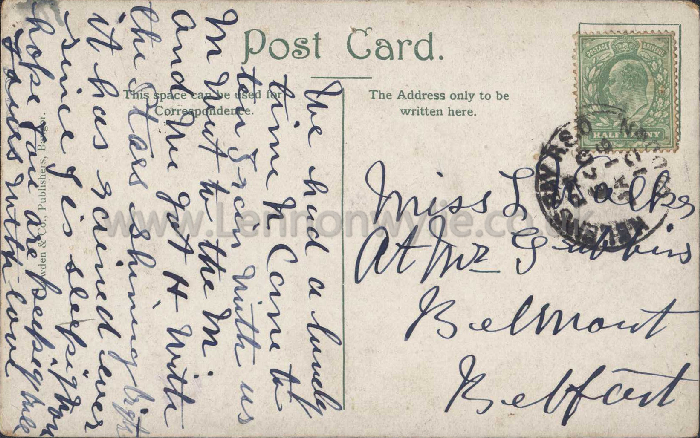 Post Card.
This space can be used for
Correspondence.
The Address only to be
written here.
POSTAGE
HALF PENNY
R.S.O.
Miss L Walker
At Mr Gribbin
Belmont
Belfast
We had a lundy
time N Came to
tea with us
M Went to the M.
and We got H with
the stars shining bright
it has rained ever
since J is sleeping now
hope you are keeping well
Love
with love
& Co., Publishers, Bangor.
www.Lennonwylie.co.uk